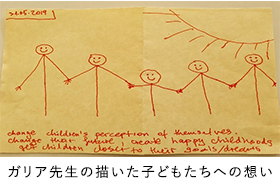 22.5.2019
change children's perception of themselves.
change that future, create happy childhoods
get children closer to their goals/dreams
ガリア先生の描いた子どもたちへの想い